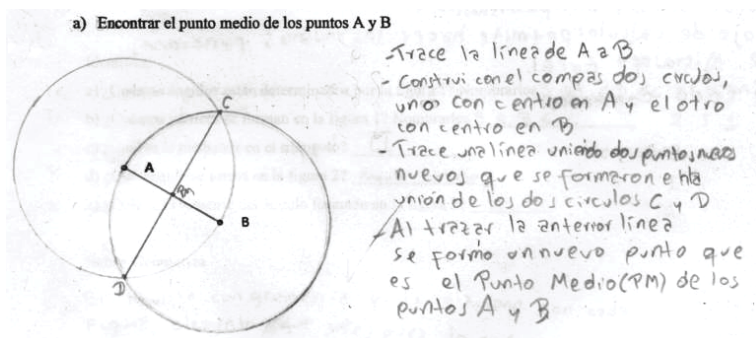 a) Encontrar el punto medio de los puntos A y B
C
A
PM
B
D
-Trace la linea de A a B
- Construi con el compas dos circulos,
uno con centro en A y el otro
con centro en B
- Trace una linea uniendo dos puntos
nuevos que se formaron en la
unión de los dos circulos C y D
- Al trazar la anterior linea
se formo un nuevo punto que
es el Punto Medio (PM) de los
puntos A y B